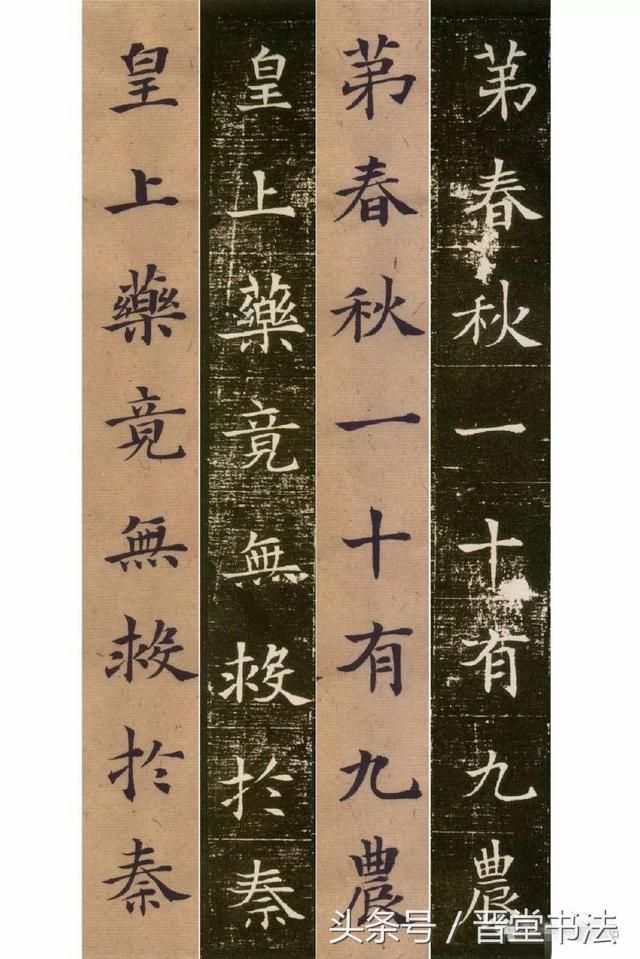 苐春秋一十有九農
苐春秋一十有九農
皇上藥竟無救扵秦
皇上藥竟無救扵秦
头条号 / 晋堂书法